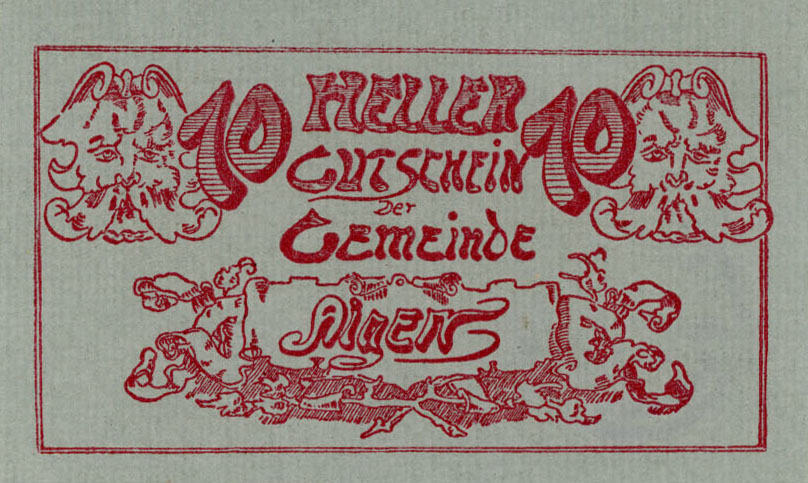 10 HELLER 10
GUTSCHEIN
Der
GEMEINDE
AIGEN